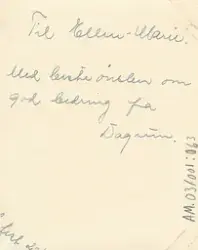 Til Hellen-Marie.
Med beste ønsker om
god bedring fra
Dagrun.
AM.03/001:063